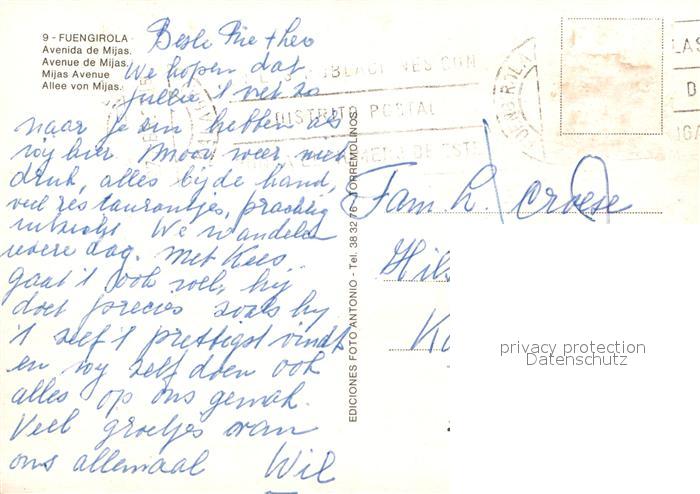 9 - FUENGIROLA
Avenida de Mijas.
Avenue de Mijas.
Mijas Avenue
Allee von Mijas.
Beste Rie + Leo
We hopen dat
jullie 't net zo
naar je zin hebben als
wij hier. Mooi weer niet
druk, alles bij de hand,
veel restaurantjes, prachtig
uitzicht. We wandelen
iedere dag. Met Kees
gaat 't ook wel, hij
doet precies zoals hij
't zelf 't prettigst vindt
en wij zelf doen ook
alles op ons gemak.
Veel groetjes van
ons allemaal Wil
EDICIONES FOTO ANTONIO - Tel. 38 32 76 - TORREMOLINOS
DISTRITO POSTAL
Fam. L. Croese
Hil
K
privacy protection
Datenschutz